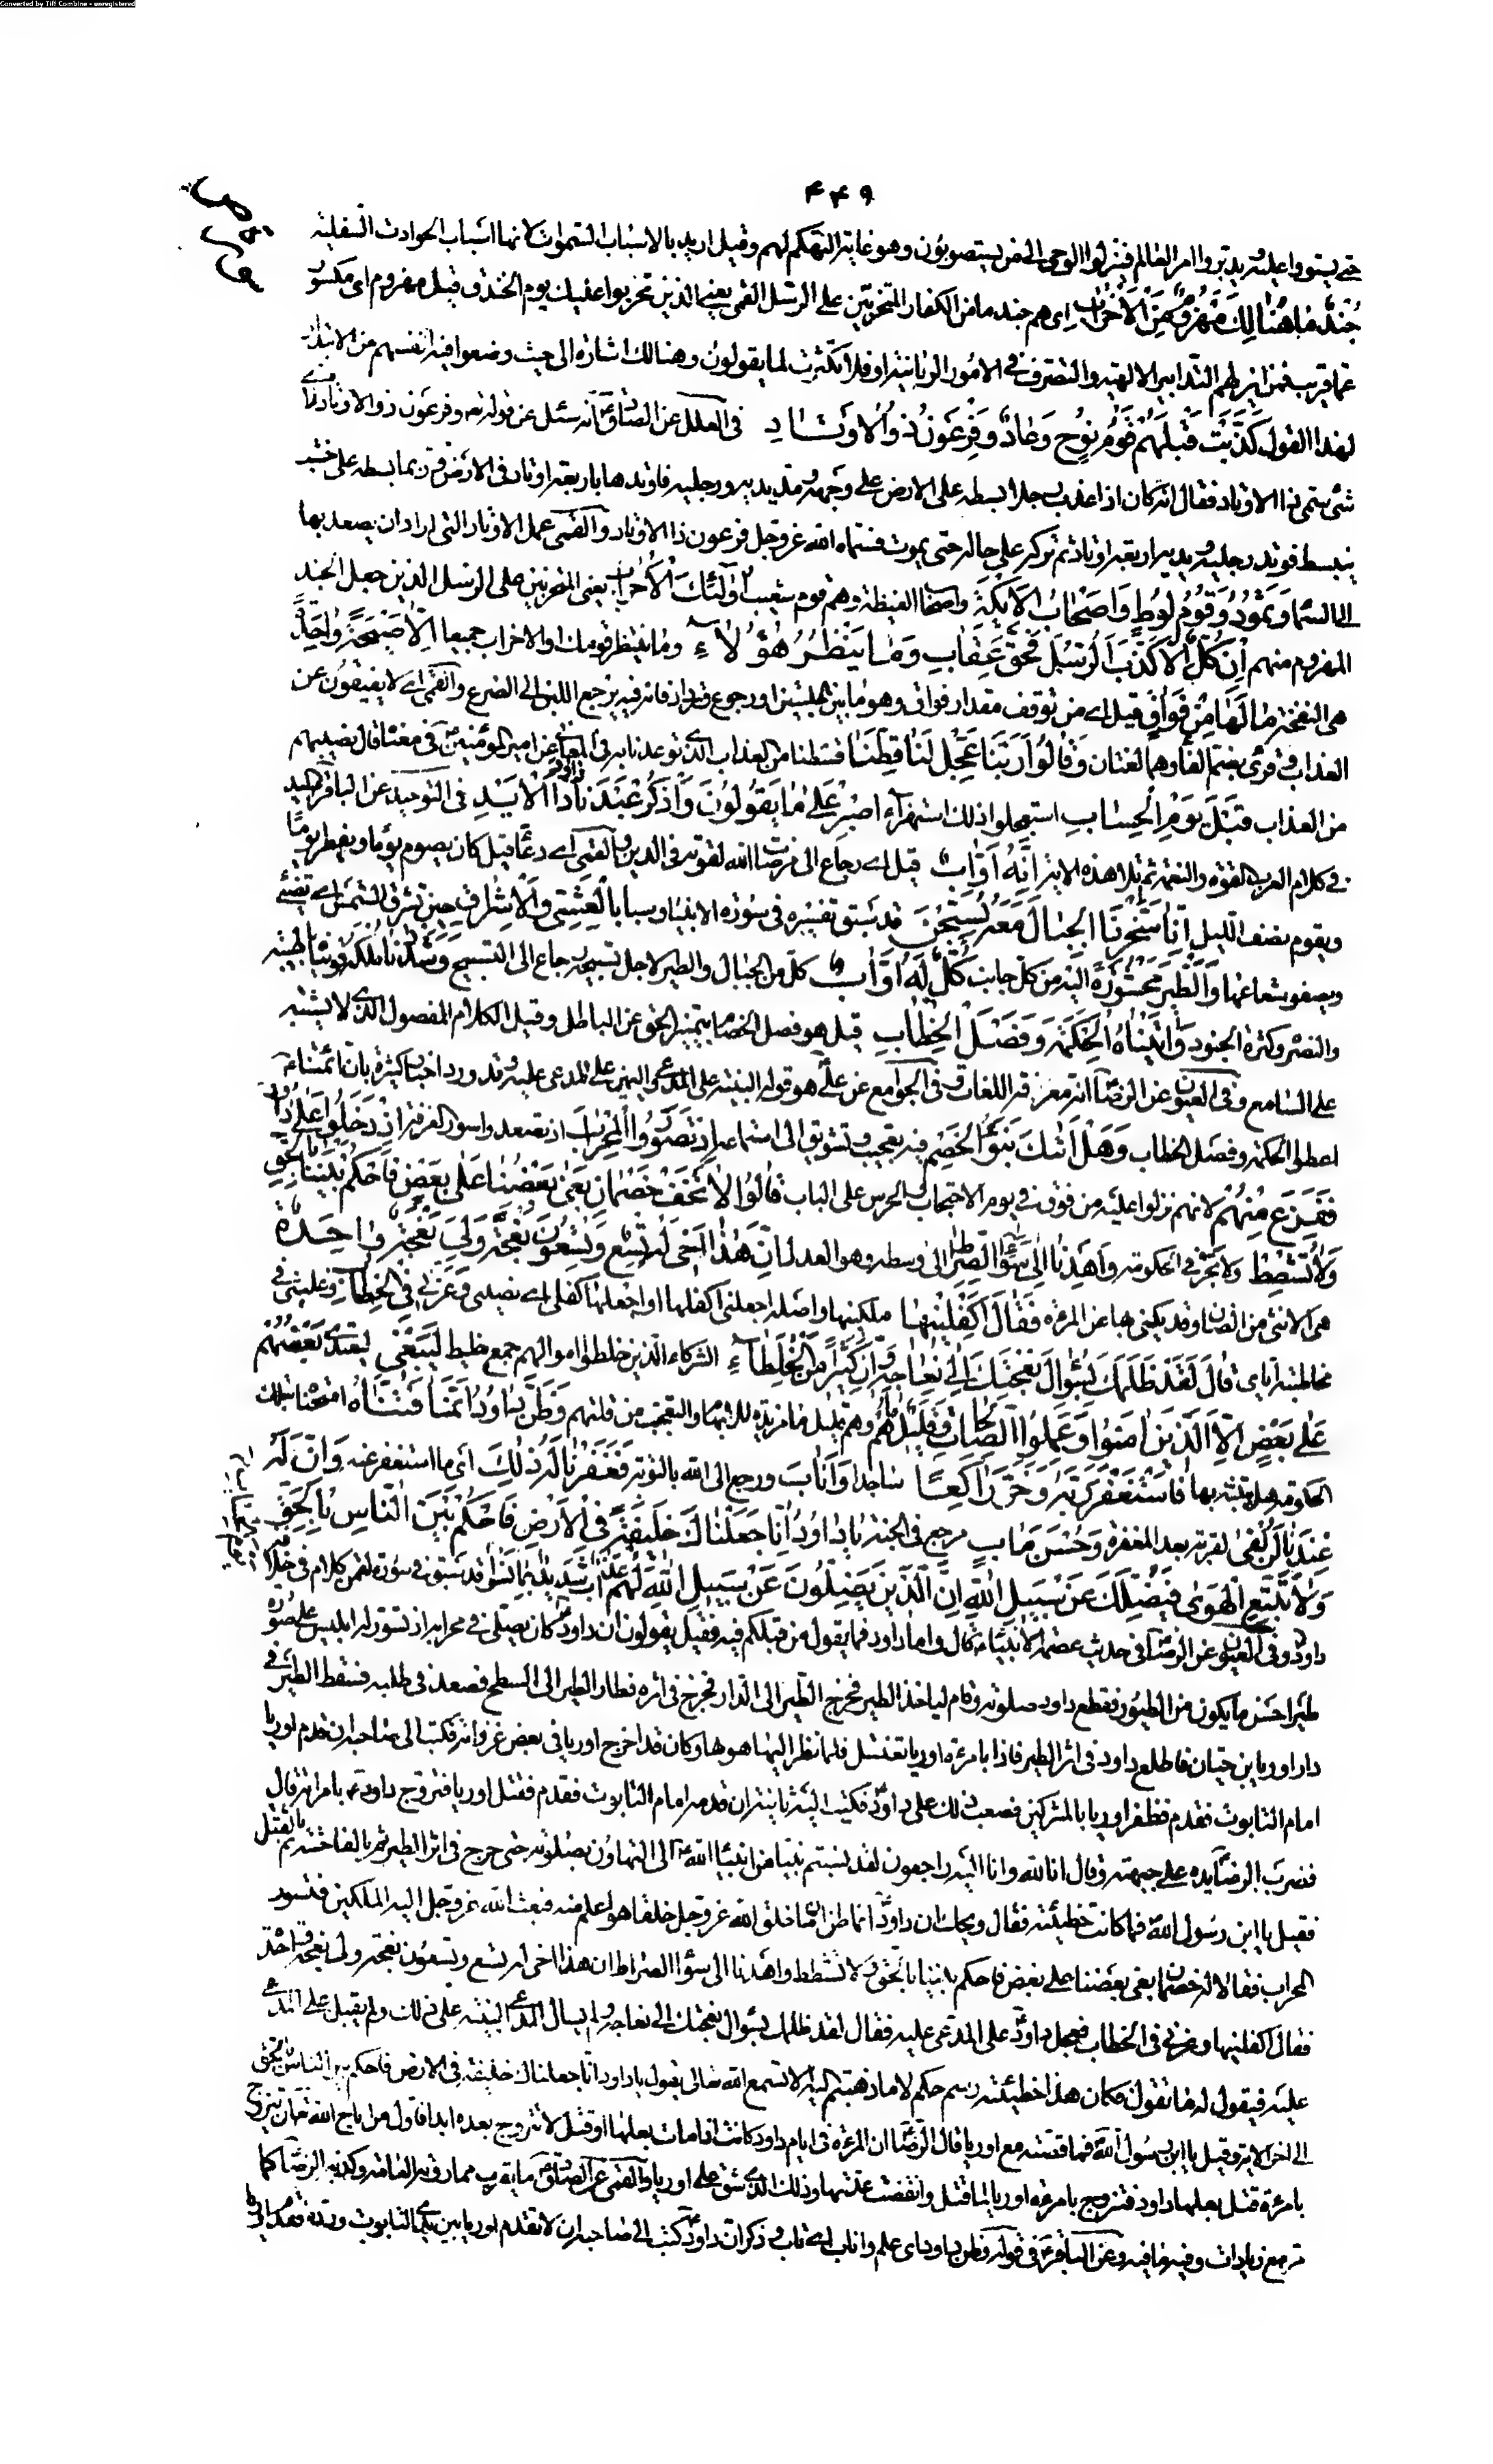 Converted by Tiff Combine - unregistered
۴۴۹
حتى يستووا عليه ويدبروا امر العالم فينزلوا الوحى الى من يستصوبون وهو غاية التهكم لهم وقيل اريد بالاسباب السموات لانها اسباب الحوادث السفلية
جُنْدٌ مَا هُنَالِكَ مَهْزُومٌ مِنَ الْأَحْزَابِ اى هم جند ما من الكفار المتحزبين على الرسل القمى يعنى الذين تحزبوا عليك يوم الخندق قيل مهزوم اى مكسور
عما قريب فمن اين لهم التدابير الالهية والتصرف فى الامور الربانية او فلا تكترث لما يقولون وهنالك اشارة الى حيث وضعوا فيه انفسهم من الانتداب
لهذا القول كَذَّبَتْ قَبْلَهُمْ قَوْمُ نُوحٍ وَعَادٌ وَفِرْعَوْنُ ذُو الْأَوْتَادِ فى العلل عن الصادق انه سئل عن قوله تع وفرعون ذو الاوتاد لاى
شئ سمى ذا الاوتاد فقال انه كان اذا عذب رجلا بسطه على الارض على وجهه ومد يديه ورجليه فاوتدها باربعة اوتاد فى الارض وربما بسطه على خشب
منبسط فوتد رجليه ويديه باربعة اوتاد ثم تركه على حاله حتى يموت فسماه الله عز وجل فرعون ذا الاوتاد والقمى عمل الاوتاد التى اراد ان يصعد بها
الى السماء وَثَمُودُ وَقَوْمُ لُوطٍ وَأَصْحَابُ الْأَيْكَةِ واصحاب الغيضة وهم قوم شعيب أُولَئِكَ الْأَحْزَابُ يعنى المتحزبين على الرسل الذين جعل الجند
المهزوم منهم إِنْ كُلٌّ إِلَّا كَذَّبَ الرُّسُلَ فَحَقَّ عِقَابِ وَمَا يَنْظُرُ هَؤُلَاءِ وما ينتظر قومك او الاحزاب جميعا إِلَّا صَيْحَةً وَاحِدَةً
هى النفخة مَا لَهَا مِنْ فَوَاقٍ قيل اى من توقف مقدار فواق وهو ما بين الحلبتين او رجوع وترداد فانه فيه يرجع اللبن الى الضرع والقمى اى لا يفيقون عن
العذاب وقرئ بضم الفاء وهما لغتان وَقَالُوا رَبَّنَا عَجِّلْ لَنَا قِطَّنَا قسطنا من العذاب الذى توعدنا به فى المعانى عن امير المؤمنين فى معناه قال نصيبهم
من العذاب قَبْلَ يَوْمِ الْحِسَابِ استعجلوا ذلك استهزاء اصْبِرْ عَلَى مَا يَقُولُونَ وَاذْكُرْ عَبْدَنَا دَاوُدَ ذَا الْأَيْدِ فى التوحيد عن الباقر اليد
فى كلام العرب القوة والنعمة ثم تلا هذه الاية إِنَّهُ أَوَّابٌ قيل اى رجاع الى مرضات الله لقوته فى الدين والقمى اى دعاء قيل كان يصوم يوما ويفطر يوما
ويقوم نصف الليل إِنَّا سَخَّرْنَا الْجِبَالَ مَعَهُ يُسَبِّحْنَ قد سبق تفسيره فى سورة الانبياء وسبا بِالْعَشِيِّ وَالْإِشْرَاقِ حين تشرق الشمس اى تضئ
ويصفو شعاعها وَالطَّيْرَ مَحْشُورَةً اليه من كل جانب كُلٌّ لَهُ أَوَّابٌ كل من الجبال والطير لاجل تسبيحه رجاع الى التسبيح وَشَدَدْنَا مُلْكَهُ قويناه بالهيبة
والنصر وكثرة الجنود وَآتَيْنَاهُ الْحِكْمَةَ وَفَصْلَ الْخِطَابِ قيل هو فصل الخصام بتمييز الحق عن الباطل وقيل الكلام المفصول الذى لا يشتبه
على السامع وفى العيون عن الرضا انه معرفة اللغات وفى الجوامع عن على هو قوله البينة على المدعى واليمين على المدعى عليه وقد ورد اخبار كثيرة بان ائمتنا
اعطوا الحكمة وفصل الخطاب وَهَلْ أَتَاكَ نَبَأُ الْخَصْمِ فيه تعجيب وتشويق الى استماعه إِذْ تَسَوَّرُوا الْمِحْرَابَ اذ تصعدوا سور الغرفة إِذْ دَخَلُوا عَلَى دَاوُدَ
فَفَزِعَ مِنْهُمْ لانهم نزلوا عليه من فوق فى يوم الاحتجاب والحرس على الباب قَالُوا لَا تَخَفْ خَصْمَانِ بَغَى بَعْضُنَا عَلَى بَعْضٍ فَاحْكُمْ بَيْنَنَا بِالْحَقِّ
وَلَا تُشْطِطْ ولا تجر فى الحكومة وَاهْدِنَا إِلَى سَوَاءِ الصِّرَاطِ الى وسطه وهو العدل إِنَّ هَذَا أَخِي لَهُ تِسْعٌ وَتِسْعُونَ نَعْجَةً وَلِيَ نَعْجَةٌ وَاحِدَةٌ
هى الانثى من الضان وقد يكنى بها عن المرءة فَقَالَ أَكْفِلْنِيهَا ملكنيها واصله اجعلنى اكفلها او اجعلها كفلى اى نصيبى وَعَزَّنِي فِي الْخِطَابِ وغلبنى فى
مخاطبته اياى قَالَ لَقَدْ ظَلَمَكَ بِسُؤَالِ نَعْجَتِكَ إِلَى نِعَاجِهِ وَإِنَّ كَثِيرًا مِنَ الْخُلَطَاءِ الشركاء الذين خلطوا اموالهم جمع خليط لَيَبْغِي ليتعدى بَعْضُهُمْ
عَلَى بَعْضٍ إِلَّا الَّذِينَ آمَنُوا وَعَمِلُوا الصَّالِحَاتِ وَقَلِيلٌ مَا هُمْ وهم قليل ما مزيدة للابهام والتعجب من قلتهم وَظَنَّ دَاوُدُ أَنَّمَا فَتَنَّاهُ امتحناه بتلك
الحكومة هل يتنبه بها فَاسْتَغْفَرَ رَبَّهُ وَخَرَّ رَاكِعًا ساجدا وَأَنَابَ ورجع الى الله بالتوبة فَغَفَرْنَا لَهُ ذَلِكَ اى ما استغفر عنه وَإِنَّ لَهُ
عِنْدَنَا لَزُلْفَى لقربة بعد المغفرة وَحُسْنَ مَآبٍ مرجع فى الجنة يَا دَاوُدُ إِنَّا جَعَلْنَاكَ خَلِيفَةً فِي الْأَرْضِ فَاحْكُمْ بَيْنَ النَّاسِ بِالْحَقِّ
وَلَا تَتَّبِعِ الْهَوَى فَيُضِلَّكَ عَنْ سَبِيلِ اللَّهِ إِنَّ الَّذِينَ يَضِلُّونَ عَنْ سَبِيلِ اللَّهِ لَهُمْ عَذَابٌ شَدِيدٌ بِمَا نَسُوا قد سبق فى سورة لقمن كلام فى خلافة
داود وفى العيون عن الرضا فى حديث عصمة الانبياء قال واما داود فما يقول من قبلكم فيه فقيل يقولون ان داود كان يصلى فى محرابه اذ تصور له ابليس على صورة
طير احسن ما يكون من الطيور فقطع داود صلوته وقام لياخذ الطير فخرج الطير الى الدار فخرج فى اثره فطار الطير الى السطح فصعد فى طلبه فسقط الطير فى
دار اوريا بن حنان فاطلع داود فى اثر الطير فاذا بامرءة اوريا تغتسل فلما نظر اليها هواها وكان قد اخرج اوريا فى بعض غزواته فكتب الى صاحبه ان قدم اوريا
امام التابوت فقدم فظفر اوريا بالمشركين فصعب ذلك على داود فكتب اليه ثانية ان قدمه امام التابوت فقدم فقتل اوريا فتزوج داود ع بامراته قال
فضرب الرضا يده على جبهته وقال انا لله وانا اليه راجعون لقد نسبتم نبيا من انبياء الله الى التهاون بصلوته حتى خرج فى اثر الطير ثم بالفاحشة ثم بالقتل
فقيل يا ابن رسول الله فما كانت خطيئته فقال ويحك ان داود انما ظن ان ما خلق الله عز وجل خلقا هو اعلم منه فبعث الله عز وجل اليه الملكين فتسورا
المحراب فقالا له خصمان بغى بعضنا على بعض فاحكم بيننا بالحق ولا تشطط واهدنا الى سواء الصراط ان هذا اخى له تسع وتسعون نعجة ولى نعجة واحدة
فقال اكفلنيها وعزنى فى الخطاب فعجل داود على المدعى عليه فقال لقد ظلمك بسؤال نعجتك الى نعاجه ولم يسال المدعى البينة على ذلك ولم يقبل على المدعى
عليه فيقول له ما تقول فكان هذا خطيئته رسم حكم لا ما ذهبتم اليه الا تسمع الله تعالى يقول يا داود انا جعلناك خليفة فى الارض فاحكم بين الناس بالحق
الى اخر الاية وقيل يا ابن رسول الله فما قصته مع اوريا قال الرضا ان المرءة فى ايام داود كانت اذا مات بعلها او قتل لا تتزوج بعده ابدا فاول من اباح الله تع ان يتزوج
بامرءة قتل بعلها داود فتزوج بامرءة اوريا لما قتل وانقضت عدتها وذلك الذى شق على اوريا والقمى عن الصادق ما يقرب مما روته العامة وكذبه الرضا كما
مر مع زيادات وفيه ما فيه وعن الباقر فى قوله وظن داود اى علم واناب اى تاب وذكر ان داود كتب الى صاحبه ان لا تقدم اوريا بين يدى التابوت ورده فقدم اوريا